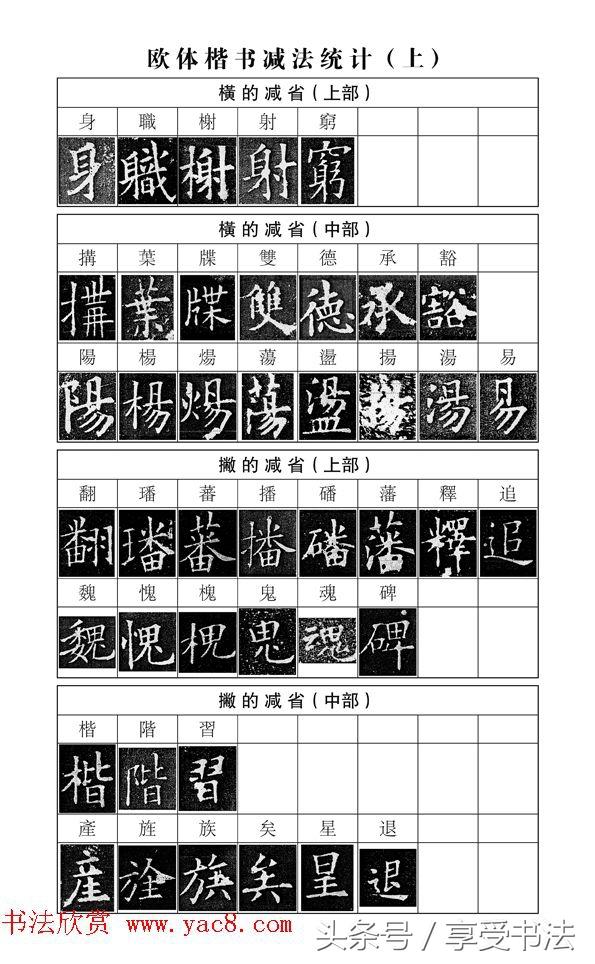 欧体楷书减法统计（上）
横的减省（上部）
身 職 榭 射 窮
身 職 榭 射 窮
横的减省（中部）
搆 葉 牒 雙 德 承 豁
搆 葉 牒 雙 德 承 豁
陽 楊 煬 蕩 盪 揚 湯 易
陽 楊 煬 蕩 盪 揚 湯 易
撇的减省（上部）
翻 璠 蕃 播 磻 藩 釋 追
翻 璠 蕃 播 磻 藩 釋 追
魏 愧 槐 鬼 魂 碑
魏 愧 槐 鬼 魂 碑
撇的减省（中部）
楷 階 習
楷 階 習
產 旌 族 矣 星 退
產 旌 族 矣 星 退
书法欣赏 www.yac8.com
头条号／享受书法